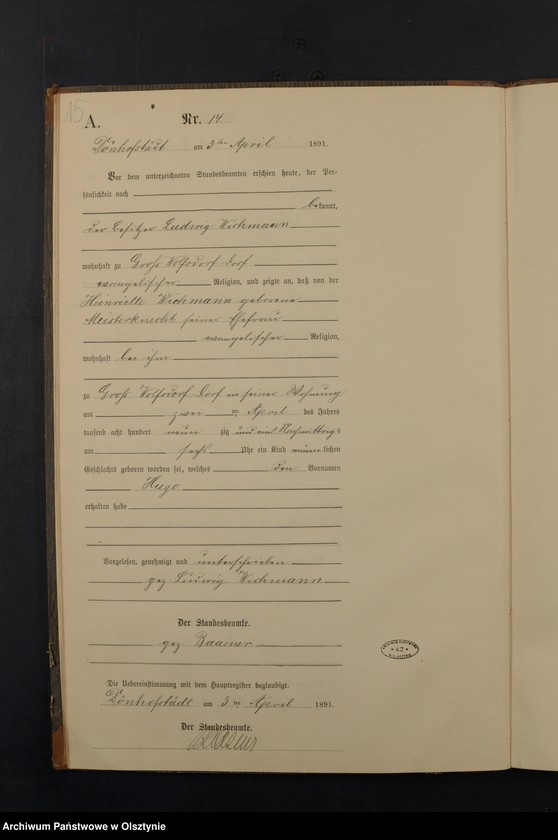 15
A.
Nr. 14
Dönhofstädt am 3ten April 1891.
Vor dem unterzeichneten Standesbeamten erschien heute, der Per-
sönlichkeit nach
bekannt,
der Besitzer Ludwig Wichmann
wohnhaft zu Groß Wolfsdorf Dorf
evangelischer Religion, und zeigte an, daß von der
Henriette Wichmann geborene
Meisterknecht seiner Ehefrau
evangelischer Religion,
wohnhaft bei ihm
zu Groß Wolfsdorf Dorf in seiner Wohnung
am zwei ten April des Jahres
tausend acht hundert neun zig und ein Nachmittags
um sechs Uhr ein Kind männlichen
Geschlechts geboren worden sei, welches den Vornamen
Hugo
erhalten habe
Vorgelesen, genehmigt und unterschrieben
gez. Ludwig Wichmann
Der Standesbeamte.
gez
Die Uebereinstimmung mit dem Hauptregister beglaubigt.
Dönhofstädt am 3ten April 1891.
Der Standesbeamte.
42
Archiwum Państwowe w Olsztynie